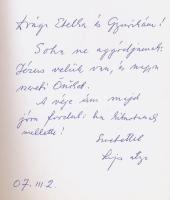 Drága Etelka és Gyurikám!
Soha ne aggódjanak:
Jézus velük van, és nagyon
szereti Önöket.
A vége úgyis majd
jóra fordul, ha kitartanak
mellette!
Szeretettel
07. III 2.